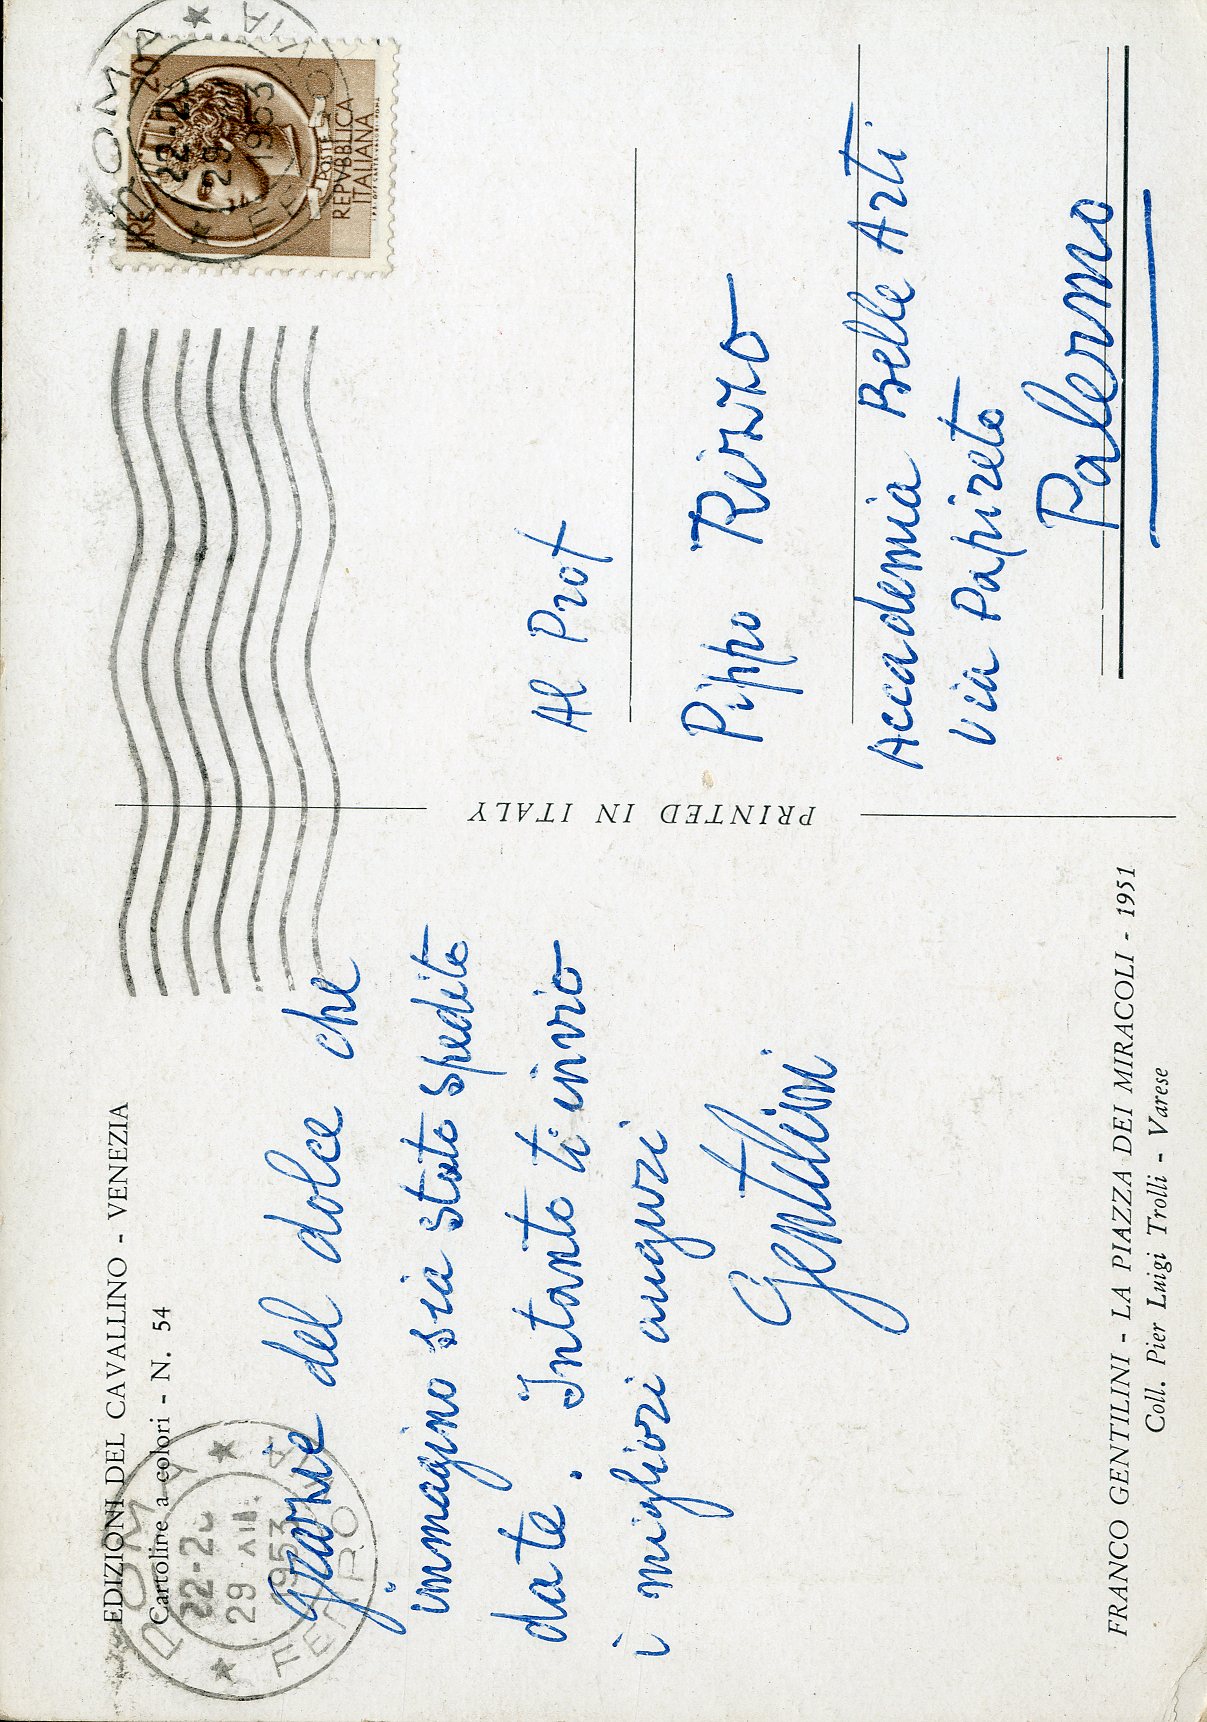 EDIZIONI DEL CAVALLINO - VENEZIA
Cartoline a colori - N. 54
ROMA
22-2
29 XII
1953
FERROVIA
grazie del dolce che
immagino sia stato spedito
da te. Intanto ti invio
i migliori auguri
Gentilini
FRANCO GENTILINI - LA PIAZZA DEI MIRACOLI - 1951
Coll. Pier Luigi Trolli - Varese
PRINTED IN ITALY
ROMA
22-2
29
1953
FERROVIA
LIRE 20
POSTE
REPVBBLICA
ITALIANA
Al Prof
Pippo Rizzo
Accademia Belle Arti
Via Papireto
Palermo